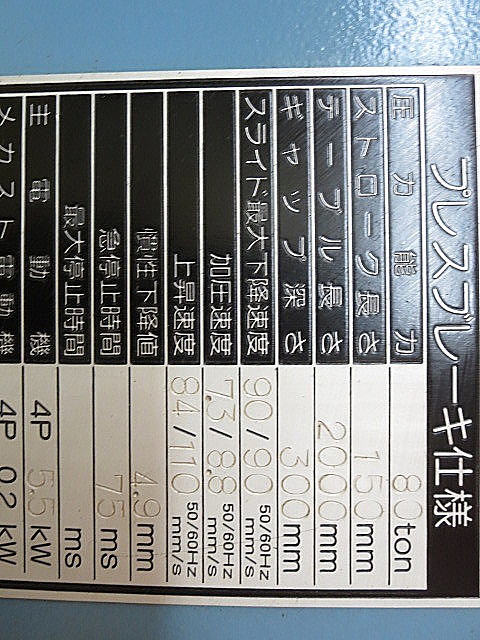 プレスブレーキ仕様
圧力能力 80 ton
ストローク長さ 150 mm
テーブル長さ 2000 mm
ギャップ深さ 300 mm
スライド最大下降速度 90/90 50/60Hz mm/s
加圧速度 7.3/8.8 50/60Hz mm/s
上昇速度 84/110 50/60Hz mm/s
慣性下降値 4.9 mm
急停止時間 75 ms
最大停止時間 ms
主電動機 4P 5.5 kW
メカスト電動機 4P 0.2 kW